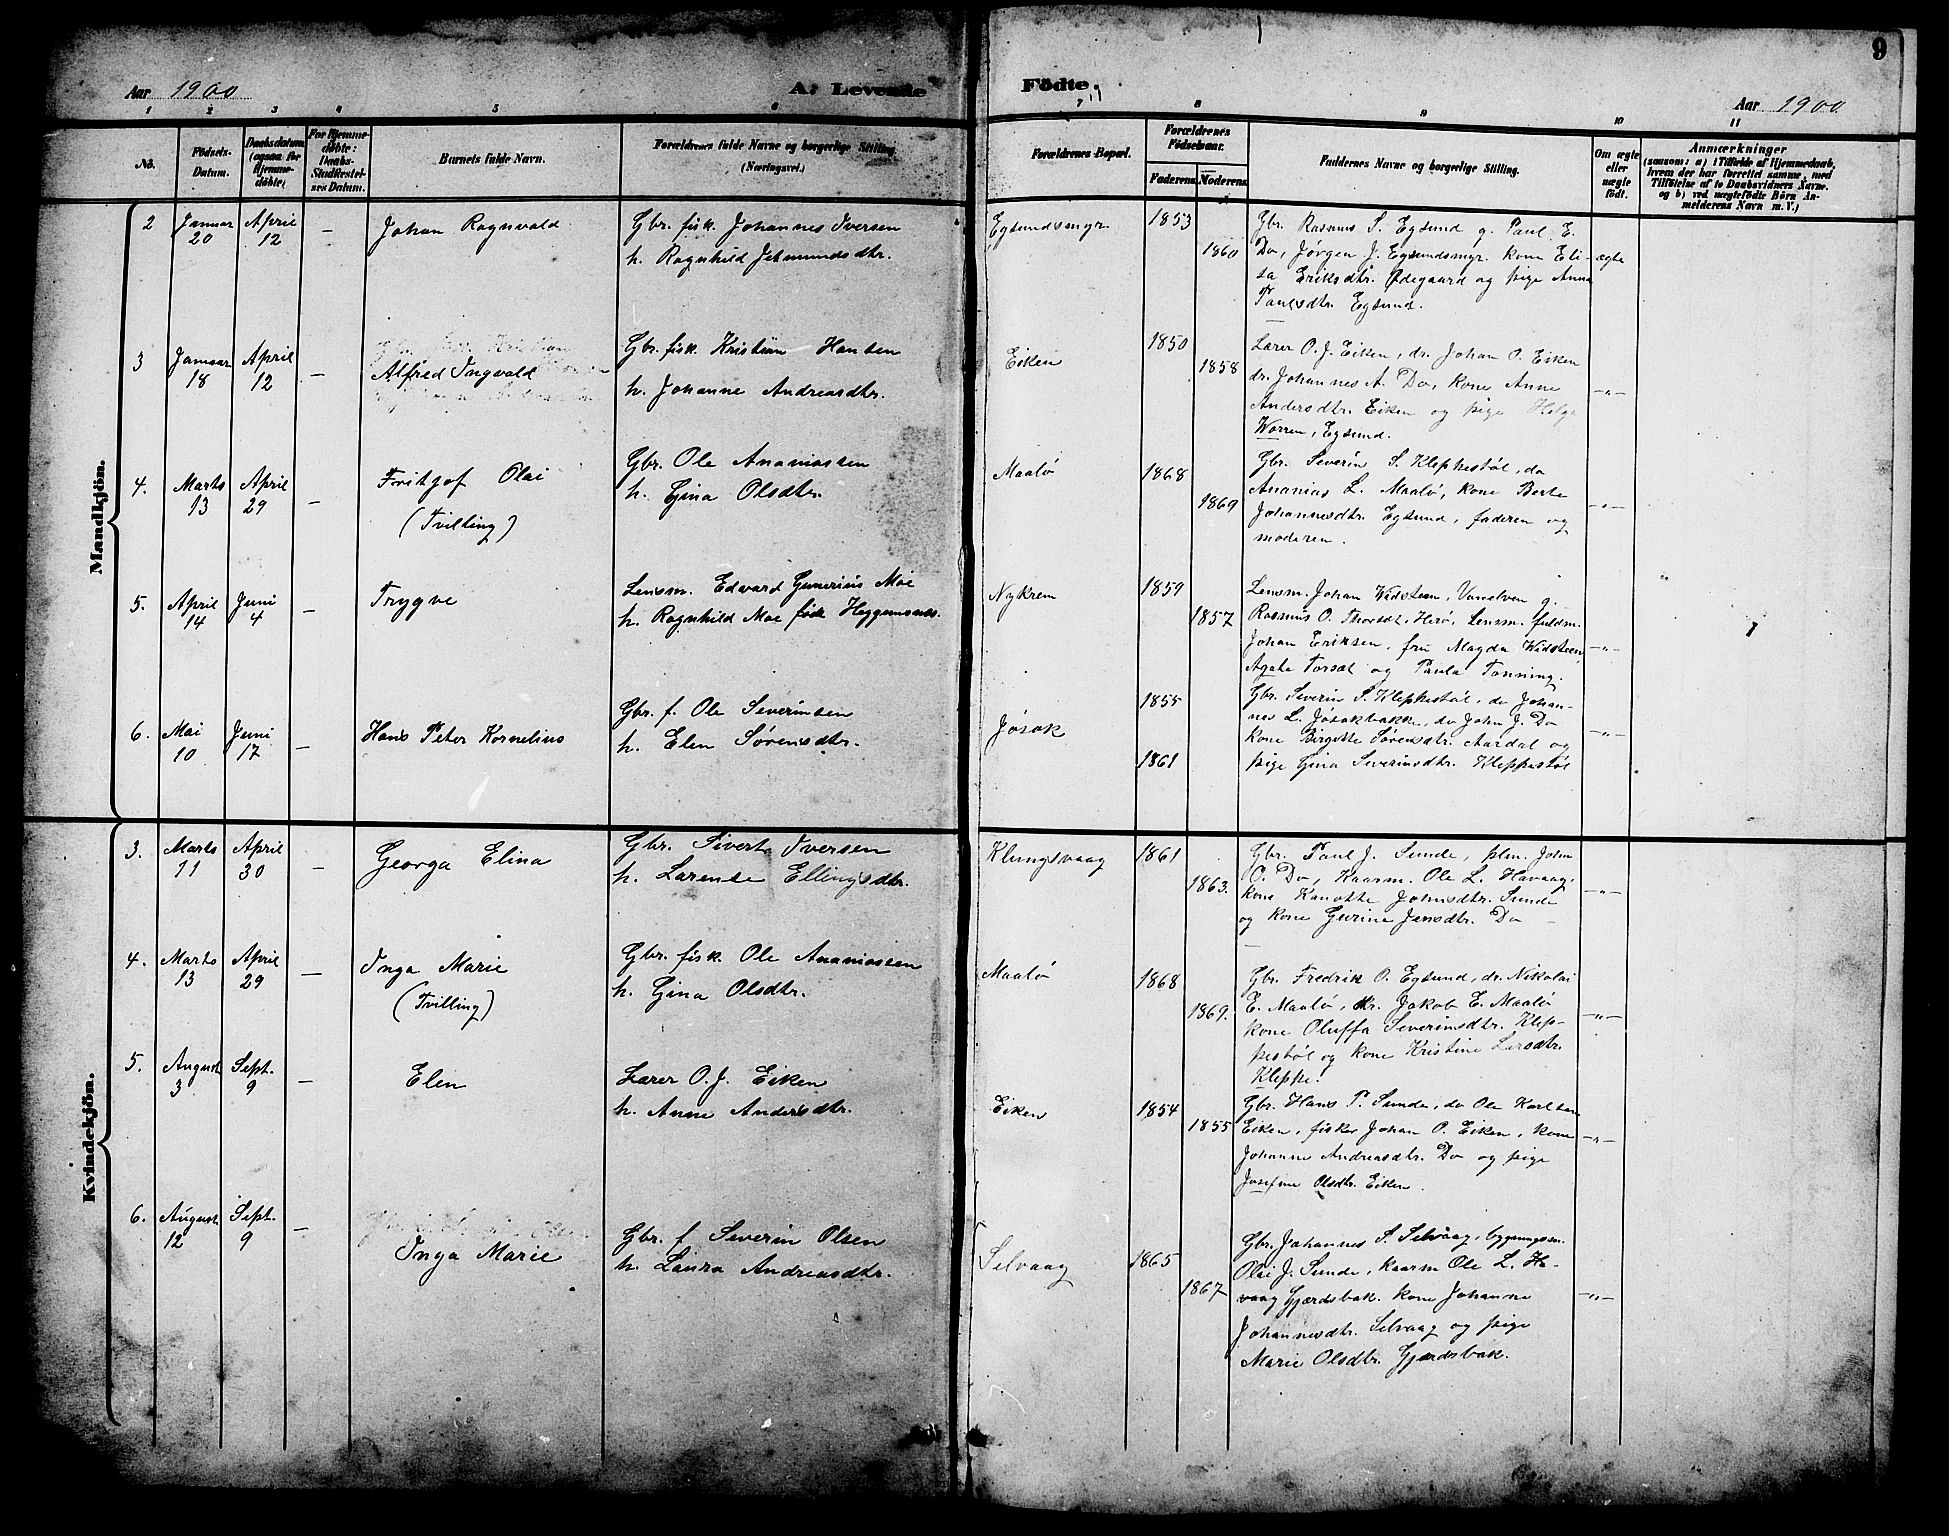 9
Aar 1900
A. Levende
Födte.
Aar 1900.
1 2 3 4 5 6 7 8 9 10 11
No.
Födsels-
Datum.
Daabsdatum
(ogsaa for
Hjemme-
döbte)
For Hjemme-
döbte:
Daabs-
Stadfæstel-
ses Datum.
Barnets fulde Navn.
Forældrenes fulde Navne og borgerlige Stilling.
(Næringsvei.)
Forældrenes Bopæl.
Forældrenes
Födselsaar.
Faderens.
Moderens.
Faddernes Navne og borgerlige Stilling.
Om ægte
eller
uægte
født.
Anmærkninger
(saasom: a) i Tilfælde af Hjemmedaab,
hvem der har forrettet samme, med
Tilföielse af to Daabsvidners Navne.
og b) ved uægtefødte Börn An-
melderens Navn m. V.)
Mandkjön.
2 Januar 20 April 12 —
Johan Ragnvald
Gbr. fisk. Johannes Iversen
h. Ragnhild Jetmundsdtr.
Egsundsmyr
1853
1860
Gbr. Rasmus S. Egsund g. Paul E.
Do, Jørgen J. Egsundsmyr. kone Eli-
sa Eriksdtr. Ødegaard og pige Anna
Paulsdtr. Egsund.
ægte
3 Januar 18 April 12 —
Alfred Ingvald
Gbr. fisk. Kristian Hansen
h. Johanne Andreasdtr.
Eiken
1850
1858
Lærer O. J. Eiken, dr. Johan O. Eiken
dr. Johannes A. Do, kone Anne
Andersdtr. Eiken og pige Helga
Worren, Egsund.
—"—
4. Marts 13 April 29 —
Fritjof Olai
(Tvilling)
Gbr. Ole Ananiassen
h. Gina Olsdtr.
Maalø
1868
1869
Gbr. Severin S. Kleppestøl, do
Ananias L. Maalø, kone Berte
Johannesdtr. Egsund, faderen og
moderen.
—"—
5. April 14 Juni 4 —
Trygve
Lensm. Edvard Gunerius Moe
h. Ragnhild Moe født Heggemsnes.
Nykrem
1859
1857
Lensm. Johan Widsteen, Vanelven g.
Rasmus O. Thorsdt, Herø, Lensm. fuldm.
Johan Eriksen, fru Magda Widsteen,
Agate Torsæt og Paula Tønning.
—"—
6. Mai 10 Juni 17 —
Hans Peter Kornelius
Gbr. f. Ole Severinsen
h. Elen Sørensdtr.
Jøsok
1855
1861
Gbr. Severin S. Kleppestøl, do Johan-
nes L. Jøsokbakke, do John J. Do
kone Birgitte Sørensdtr. Aardal og
pige Gina Severinsdtr. Kleppestøl
—"—
Kvindekjön.
3. Marts 11 April 30 —
Georga Elina
Gbr. Sivert Iversen
h. Larense Ellingsdtr.
Klungsvaag
1861
1863.
Gbr. Paul J. Sunde, pln. John
O. Do, Kaarm. Ole L. Havaag,
kone Kanutte Johnsdtr. Sunde
og kone Gurine Jensdtr. Do
—"—
4. Marts 13 April 29 —
Inga Marie
(Tvilling)
Gbr. fisk. Ole Ananiassen
h. Gina Olsdtr.
Maalø
1868
1869.
Gbr. Fredrik O. Egsund, dr. Nikolai
E. Maalø, dr. Jakob E. Maalø
kone Oluffa Severinsdtr. Klep-
pestøl og kone Kristine Larsdtr.
Kleppe.
—"—
5. August 3 Sept. 9 —
Elen
Lærer O. J. Eiken
h. Anne Andersdtr.
Eiken
1854
1855
Gbr. Hans P. Sunde, do Ole Karlsen
Eiken, fisker Johan O. Eiken, kone
Johanne Andreasdtr. Do og pige
Josefine Olsdtr. Eiken.
—"—
6. August 12 Sept. 9 —
Inga Marie
Gbr. f. Severin Olsen
h. Laura Andreasdtr.
Selvaag
1865
1867
Gbr. Johannes S. Selvaag, bygningssn.
Olai J. Sunde, kaarm Ole L. Ha-
vaag Gjærdsbak. kone Johanne
Johannesdtr. Selvaag og pige
Marie Olsdtr. Gjerdsbak.
—"—